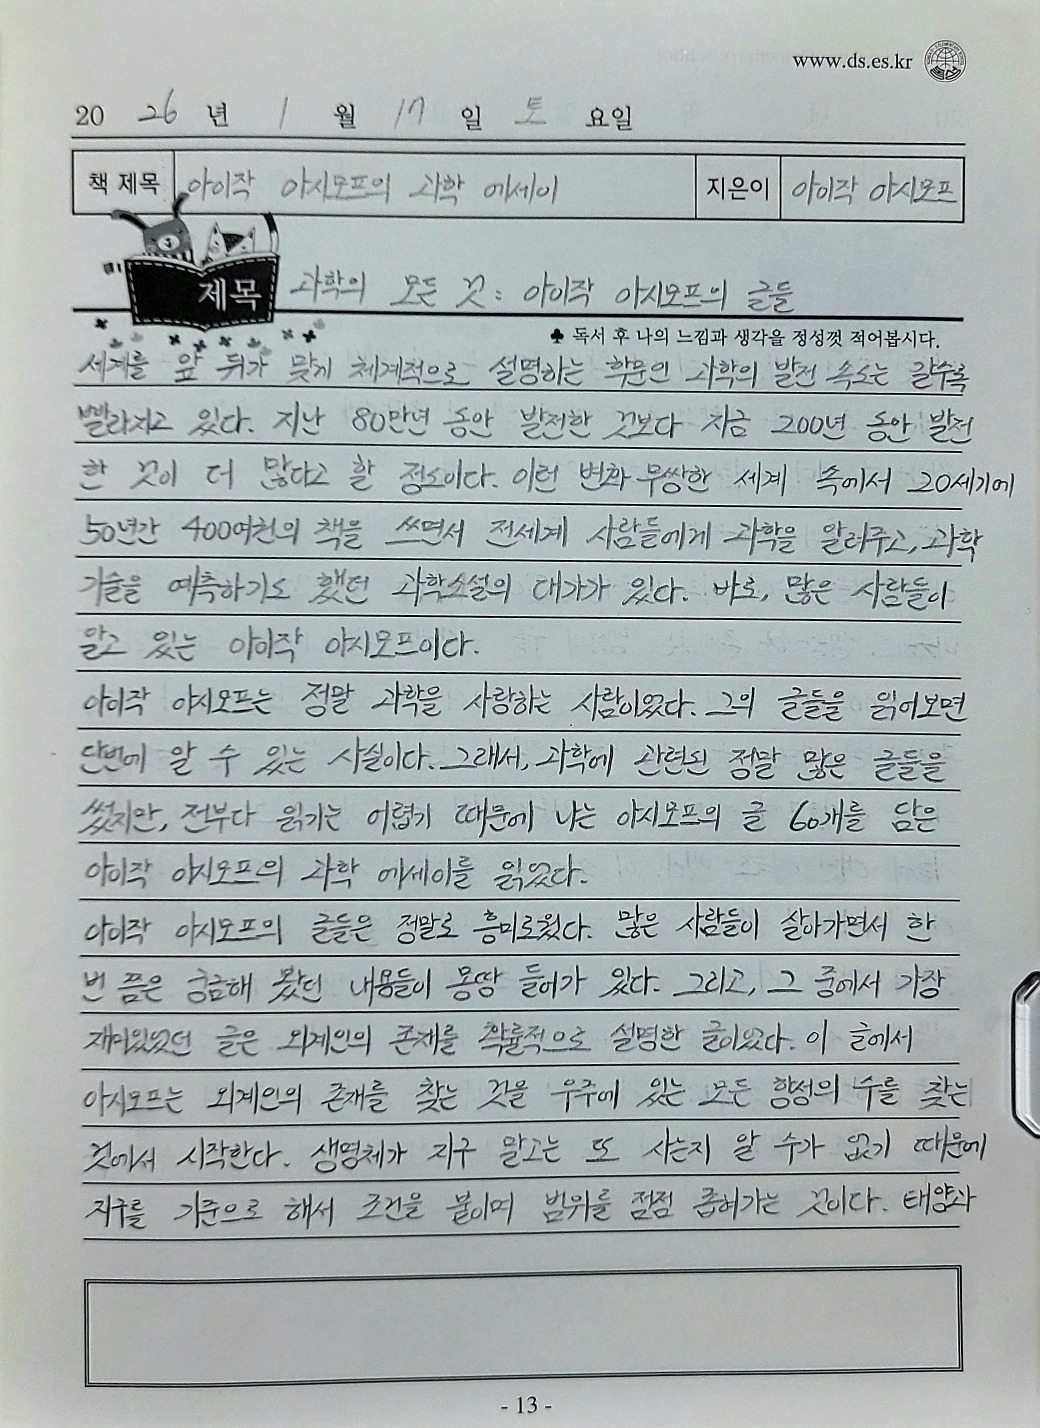 www.ds.es.kr
20 26 년 1 월 17 일 토 요일
책 제목 아이작 아시모프의 과학 에세이 지은이 아이작 아시모프
제목 과학의 모든 것: 아이작 아시모프의 글들
♣ 독서 후 나의 느낌과 생각을 정성껏 적어봅시다.
세계를 앞 뒤가 맞게 체계적으로 설명하는 학문인 과학의 발전 속도는 갈수록
빨라지고 있다. 지난 80만년 동안 발전한 것보다 지금 200년 동안 발전
한 것이 더 많다고 할 정도이다. 이런 변화 무쌍한 세계 속에서 20세기에
50년간 400여권의 책을 쓰면서 전세계 사람들에게 과학을 알려주고, 과학
기술을 예측하기도 했던 과학소설의 대가가 있다. 바로, 많은 사람들이
알고 있는 아이작 아시모프이다.
아이작 아시모프는 정말 과학을 사랑하는 사람이었다. 그의 글들을 읽어보면
단번에 알 수 있는 사실이다. 그래서, 과학에 관련된 정말 많은 글들을
썼지만, 전부다 읽기는 어렵기 때문에 나는 아시모프의 글 60개를 담은
아이작 아시모프의 과학 에세이를 읽었다.
아이작 아시모프의 글들은 정말로 흥미로웠다. 많은 사람들이 살아가면서 한
번 쯤은 궁금해 봤던 내용들이 몽땅 들어가 있다. 그리고, 그 중에서 가장
재미있었던 글은 외계인의 존재를 확률적으로 설명한 글이었다. 이 글에서
아시모프는 외계인의 존재를 찾는 것을 우주에 있는 모든 항성의 수를 찾는
것에서 시작한다. 생명체가 지구 말고는 또 사는지 알 수가 없기 때문에
지구를 기준으로 해서 조건을 붙이며 범위를 점점 좁혀가는 것이다. 태양과
- 13 -